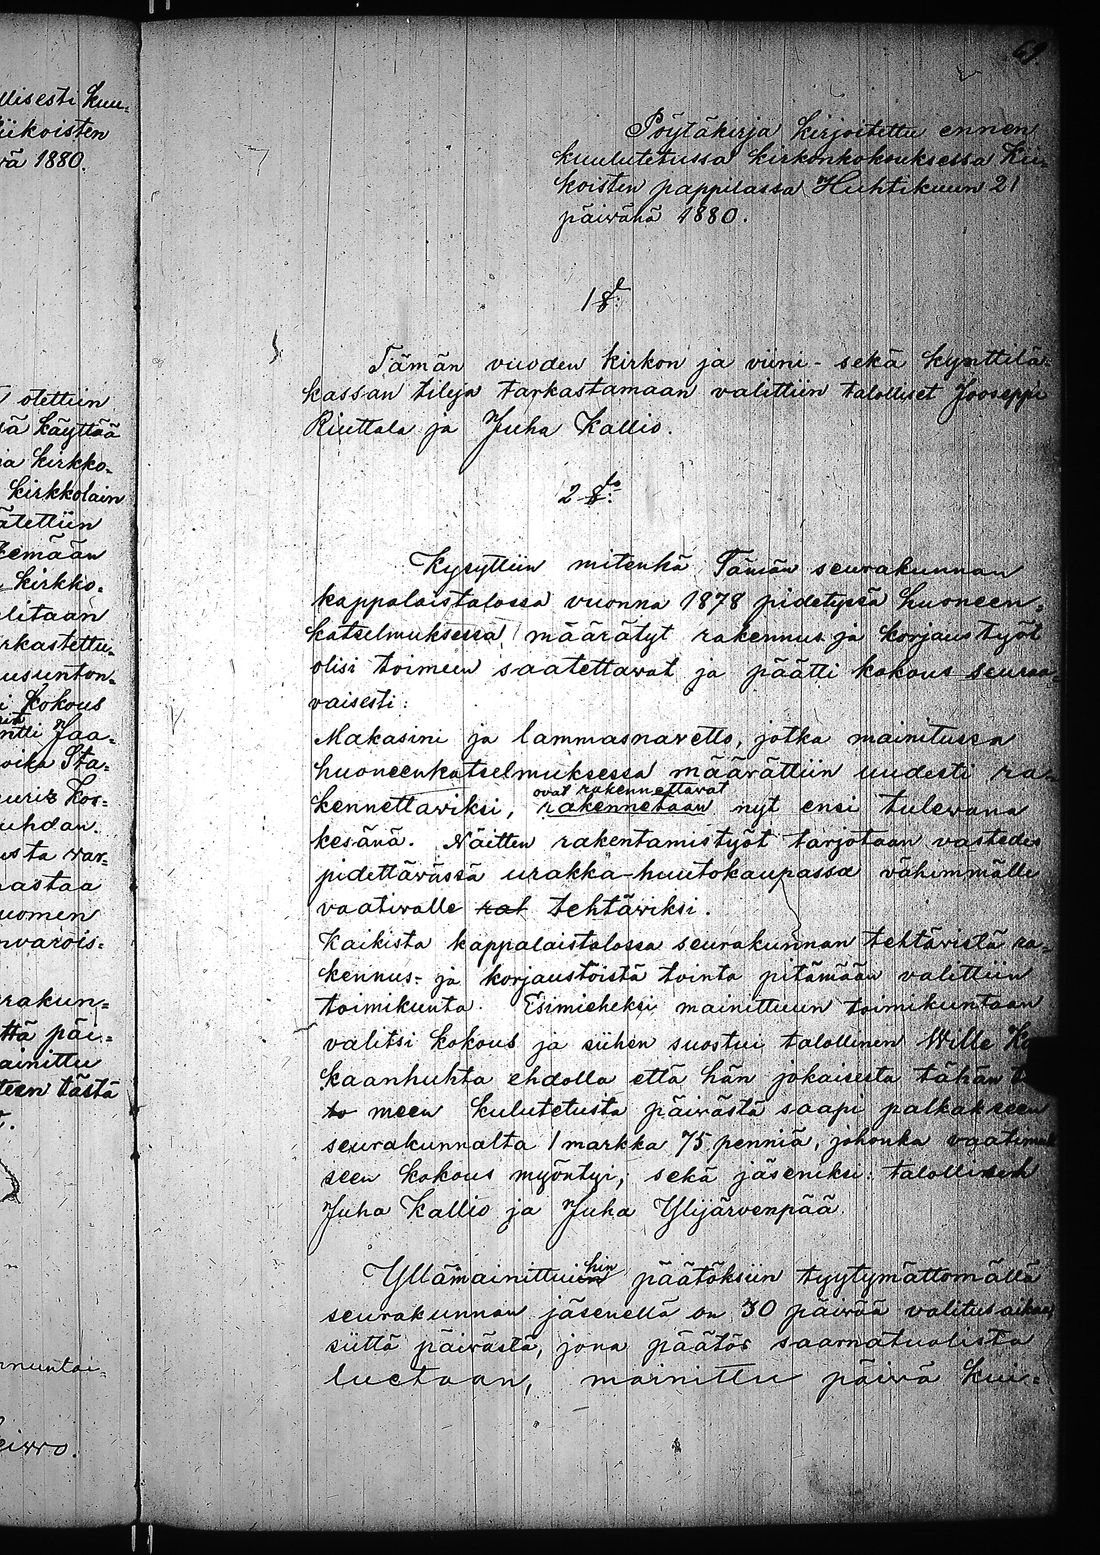 llisesti kuu=
iikoisten
vä 1880.
otettiin
sä käyttää
ia kirkko=
kirkkolain
ätettiin
temään
kirkko=
elitaan
rkastettu=
usunton=
i kokous
ntti Jaa=
oika Sta=
uris Kos=
uhdan.
usta war=
rastaa
uomen
nvarois=
erakun=
ttä päi=
ainittu
teen tästä
nnuntai=
69.
Pöytäkirja kirjoitettu ennen
kuulutetussa kirkonkokouksessa Kii=
koisten pappilassa Huhtikuun 21
päivänä 1880.
1 §.
Tämän vuoden kirkon ja viini- sekä kynttilä=
kassan tilejä tarkastamaan valittiin talolliset Jooseppi
Riuttala ja Juha Kallio.
2 §.
Kysyttiin mitenkä Tämän seurakunnan
kappalaistalossa vuonna 1878 pidetyssä huoneen=
katselmuksessa määrätyt rakennus ja korjaustyöt
olisi toimeen saatettavat ja päätti kokous seuraa=
vaisesti:
Makasini ja lammasnavetto, jotka mainitussa
huoneenkatselmuksessa määrättiin uudesti ra=
ovat rakennettavat
kennettaviksi, rakennetaan nyt ensi tulevana
kesänä. Näitten rakentamistyöt tarjotaan vastedes
pidettävässä urakka-huutokaupassa vähimmälle
vaativalle rat tehtäviksi.
Kaikista kappalaistalossa seurakunnan tehtävistä ra=
kennus- ja korjaustöistä tointa pitämään valittiin
toimikunta. Esimieheksi mainittuun toimikuntaan
valitsi kokous ja siihen suostui talollinen Wille Ko
kaanhuhta ehdolla että hän jokaisesta tähän t
to meen kulutetusta päivästä saapi palkakseen
seurakunnalta 1 markka 75 penniä, johonka vaatimuk
seen kokous myöntyi; sekä jäseniksi: talolliset
Juha Kallio ja Juha Ylijärvenpää.
hin
Yllämainittuiin päätöksiin tyytymättömällä
seurakunnan jäsenellä on 30 päivää valitusaikaa,
siittä päivästä, jona päätös saarnatuolista
luetaan, mainittu päivä kui=